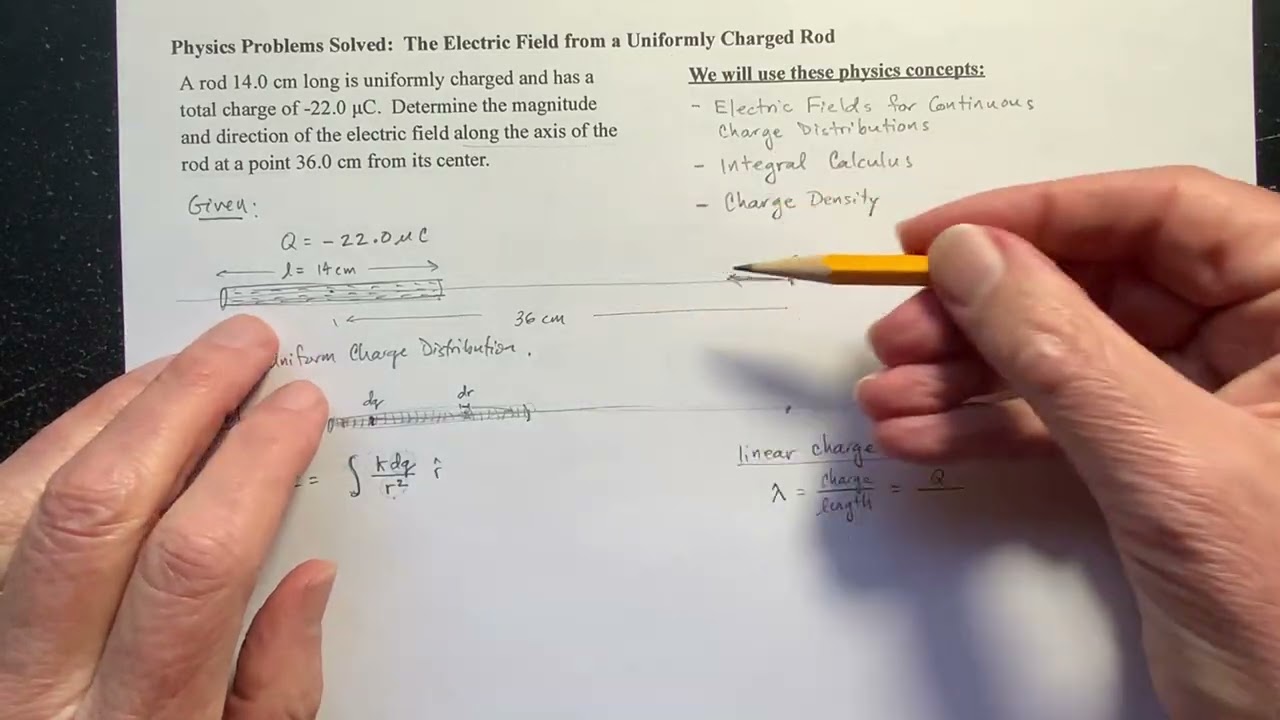 Physics Problems Solved: The Electric Field from a Uniformly Charged Rod
A rod 14.0 cm long is uniformly charged and has a
total charge of -22.0 µC. Determine the magnitude
and direction of the electric field along the axis of the
rod at a point 36.0 cm from its center.
We will use these physics concepts:
- Electric Fields for Continuous
Charge Distributions
- Integral Calculus
- Charge Density
Given:
Q = -22.0 µC
l = 14 cm
36 cm
Uniform Charge Distribution.
dq
dr
= ∫ k dq / r² r̂
linear charge
λ = charge / length = Q